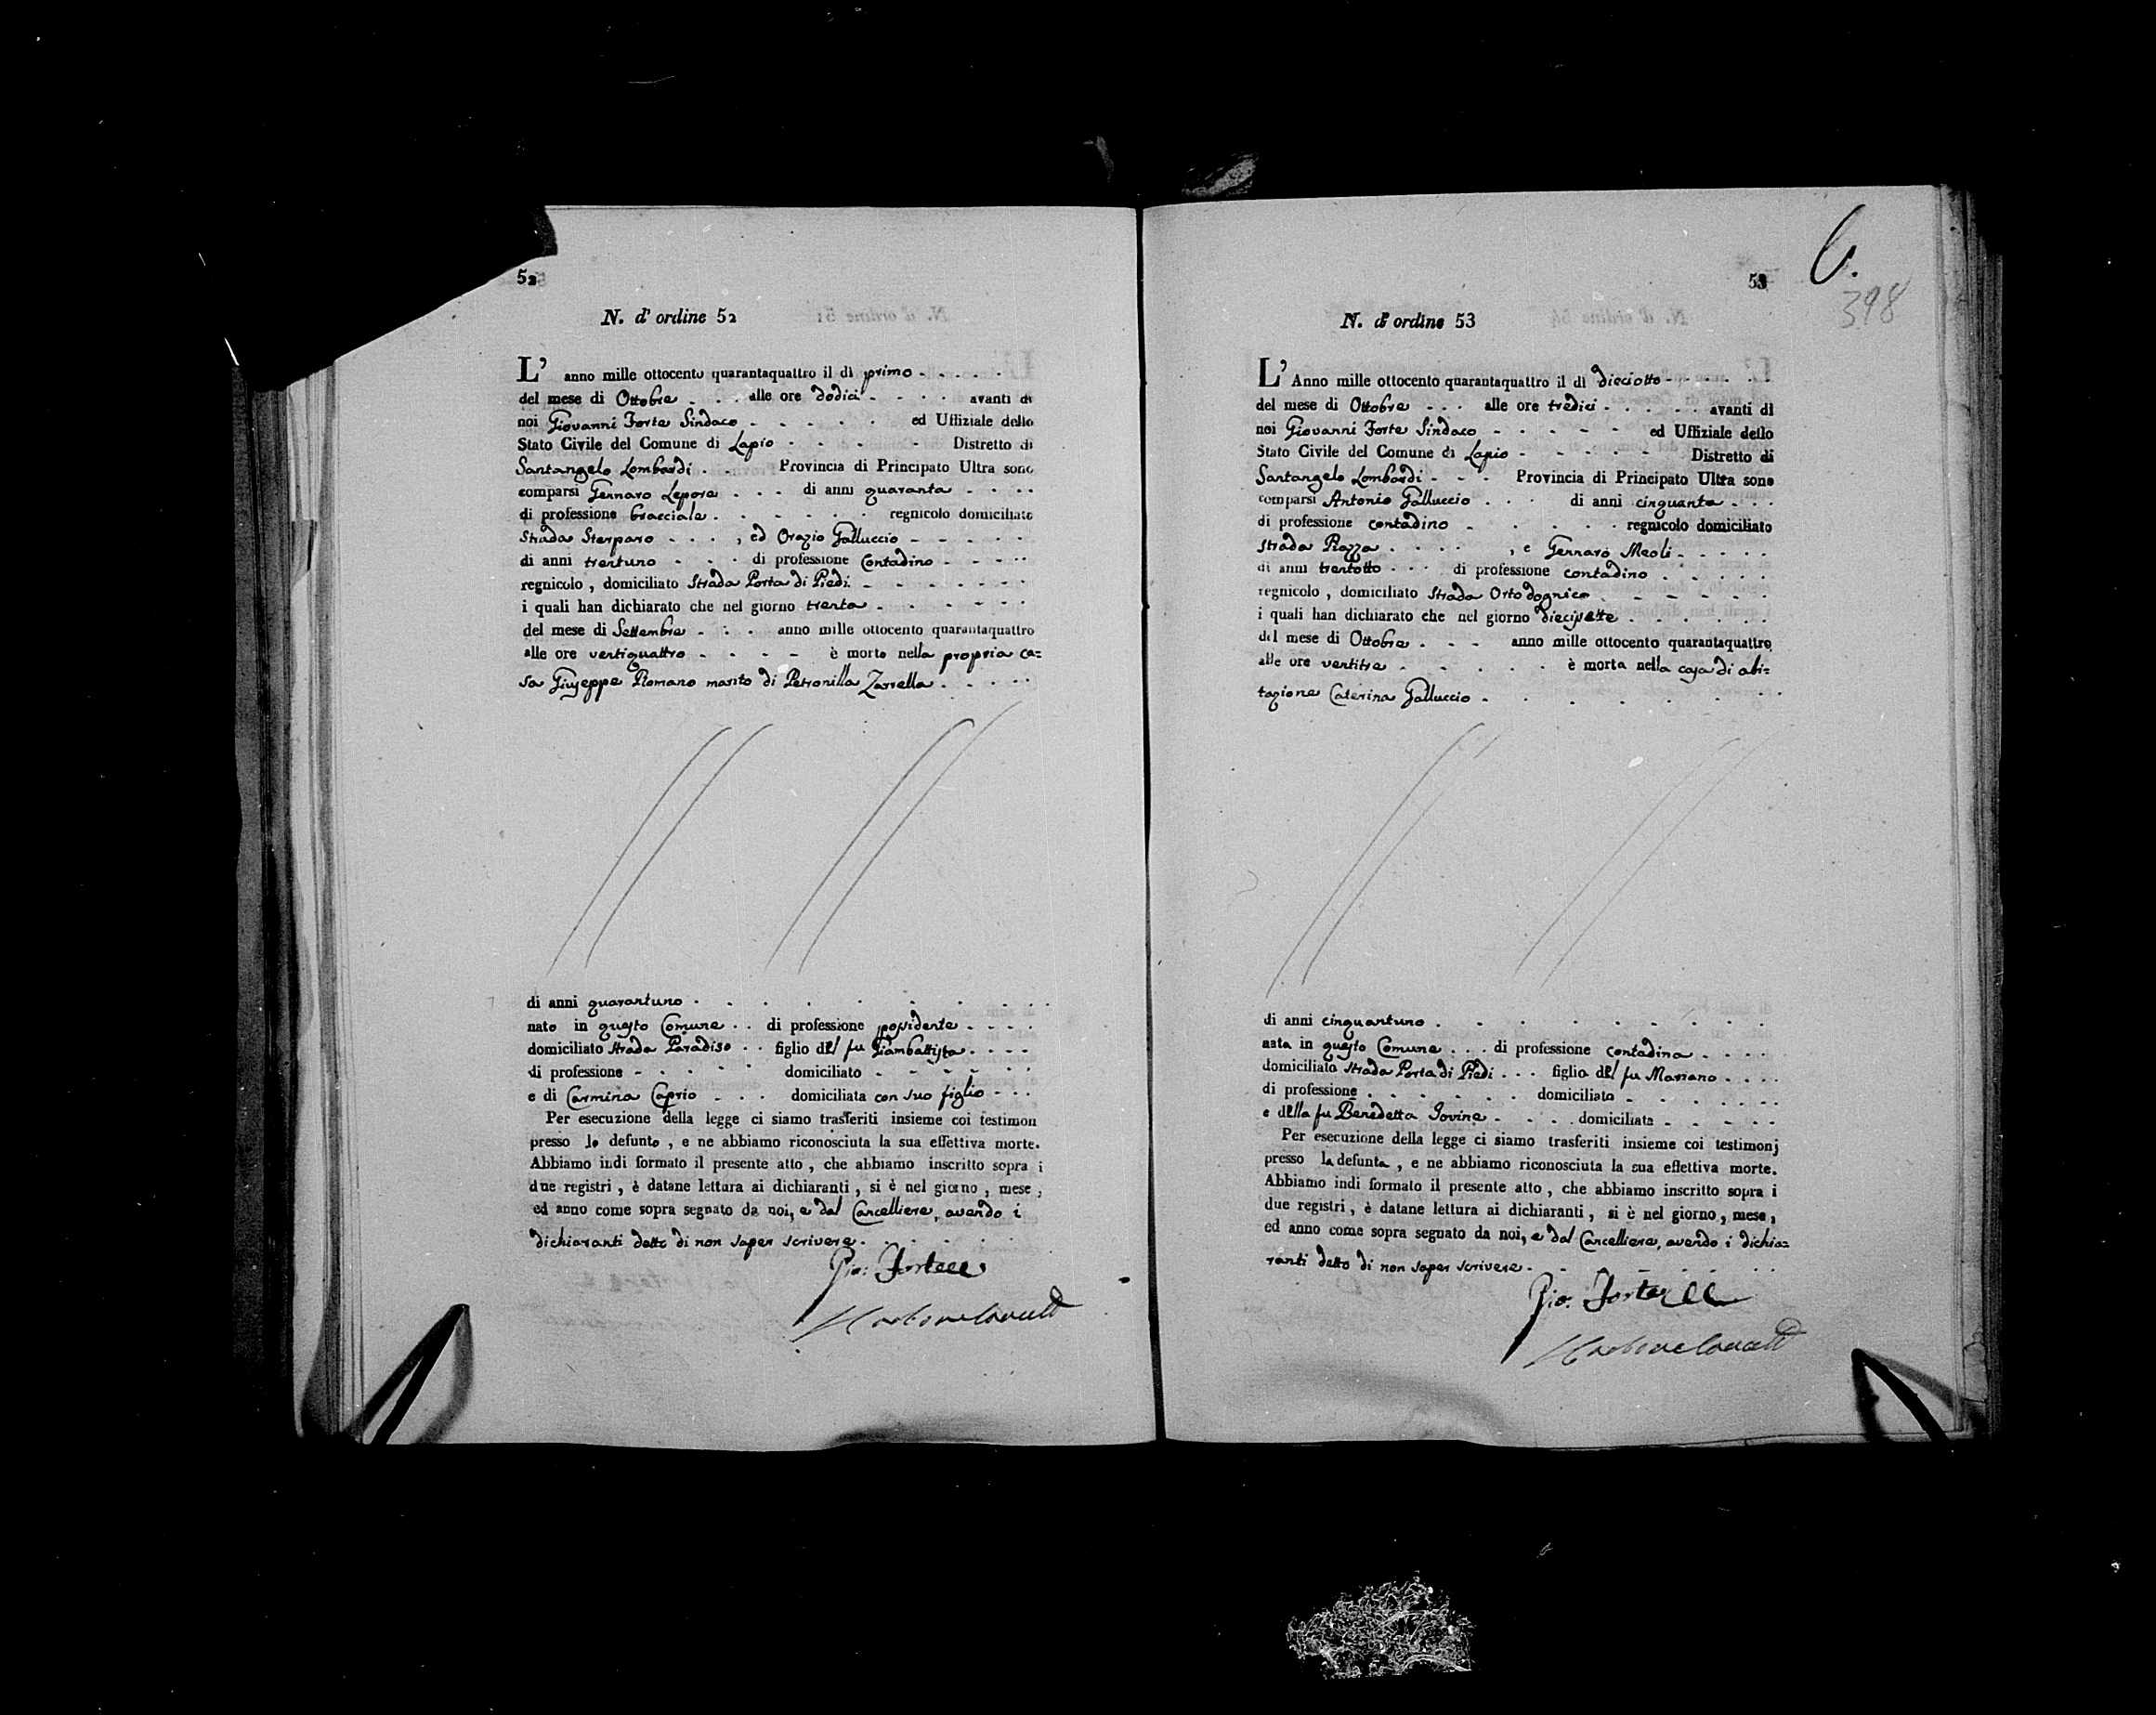 52
N. d' ordine 52
L' anno mille ottocento quarantaquattro il dì primo
del mese di Ottobre alle ore dodici avanti di
noi Giovanni Forte Sindaco ed Uffiziale dello
Stato Civile del Comune di Lapio Distretto di
Santangelo Lombardi Provincia di Principato Ultra sono
comparsi Gennaro Lepore di anni quaranta
di professione bracciale regnicolo domiciliato
Strada Sterparo , ed Orazio Galluccio
di anni trentuno di professione Contadino
regnicolo , domiciliato Strada Porta di Piedi
i quali han dichiarato che nel giorno trenta
del mese di Settembre anno mille ottocento quarantaquattro
alle ore ventiquattro è morto nella propria ca=
sa Giuseppe Romano marito di Petronilla Zarrella
di anni quarantuno
nato in questo Comune di professione possidente
domiciliato Strada Paradiso figlio del fu Giambattista
di professione domiciliato
e di Carmina Caprio domiciliata con suo figlio
Per esecuzione della legge ci siamo trasferiti insieme coi testimon
presso lo defunto , e ne abbiamo riconosciuta la sua effettiva morte.
Abbiamo indi formato il presente atto , che abbiamo inscritto sopra i
due registri , è datane lettura ai dichiaranti , si è nel giorno , mese ,
ed anno come sopra segnato da noi, e dal Cancelliere, avendo i
dichiaranti detto di non saper scrivere.
Gio: Forte
53
6.
398
N. d' ordine 53
L' Anno mille ottocento quarantaquattro il dì dieciotto
del mese di Ottobre alle ore tredici avanti di
noi Giovanni Forte Sindaco ed Uffiziale dello
Stato Civile del Comune di Lapio Distretto di
Santangelo Lombardi Provincia di Principato Ultra sono
comparsi Antonio Galluccio di anni cinquanta
di professione contadino regnicolo domiciliato
Strada Piazza , e Gennaro Meoli
di anni trentotto di professione contadino
regnicolo , domiciliato Strada Ortodognico
i quali han dichiarato che nel giorno diecisette
del mese di Ottobre anno mille ottocento quarantaquattro
alle ore ventitre è morta nella casa di abi=
tazione Caterina Galluccio
di anni cinquantuno
nata in questo Comune di professione contadina
domiciliata Strada Porta di Piedi figlia del fu Mariano
di professione domiciliato
e della fu Benedetta Iovine domiciliata
Per esecuzione della legge ci siamo trasferiti insieme coi testimonj
presso la defunta , e ne abbiamo riconosciuta la sua effettiva morte.
Abbiamo indi formato il presente atto , che abbiamo inscritto sopra i
due registri , è datane lettura ai dichiaranti , si è nel giorno , mese ,
ed anno come sopra segnato da noi, e dal Cancelliere, avendo i dichia=
ranti detto di non saper scrivere.
Gio: Forte